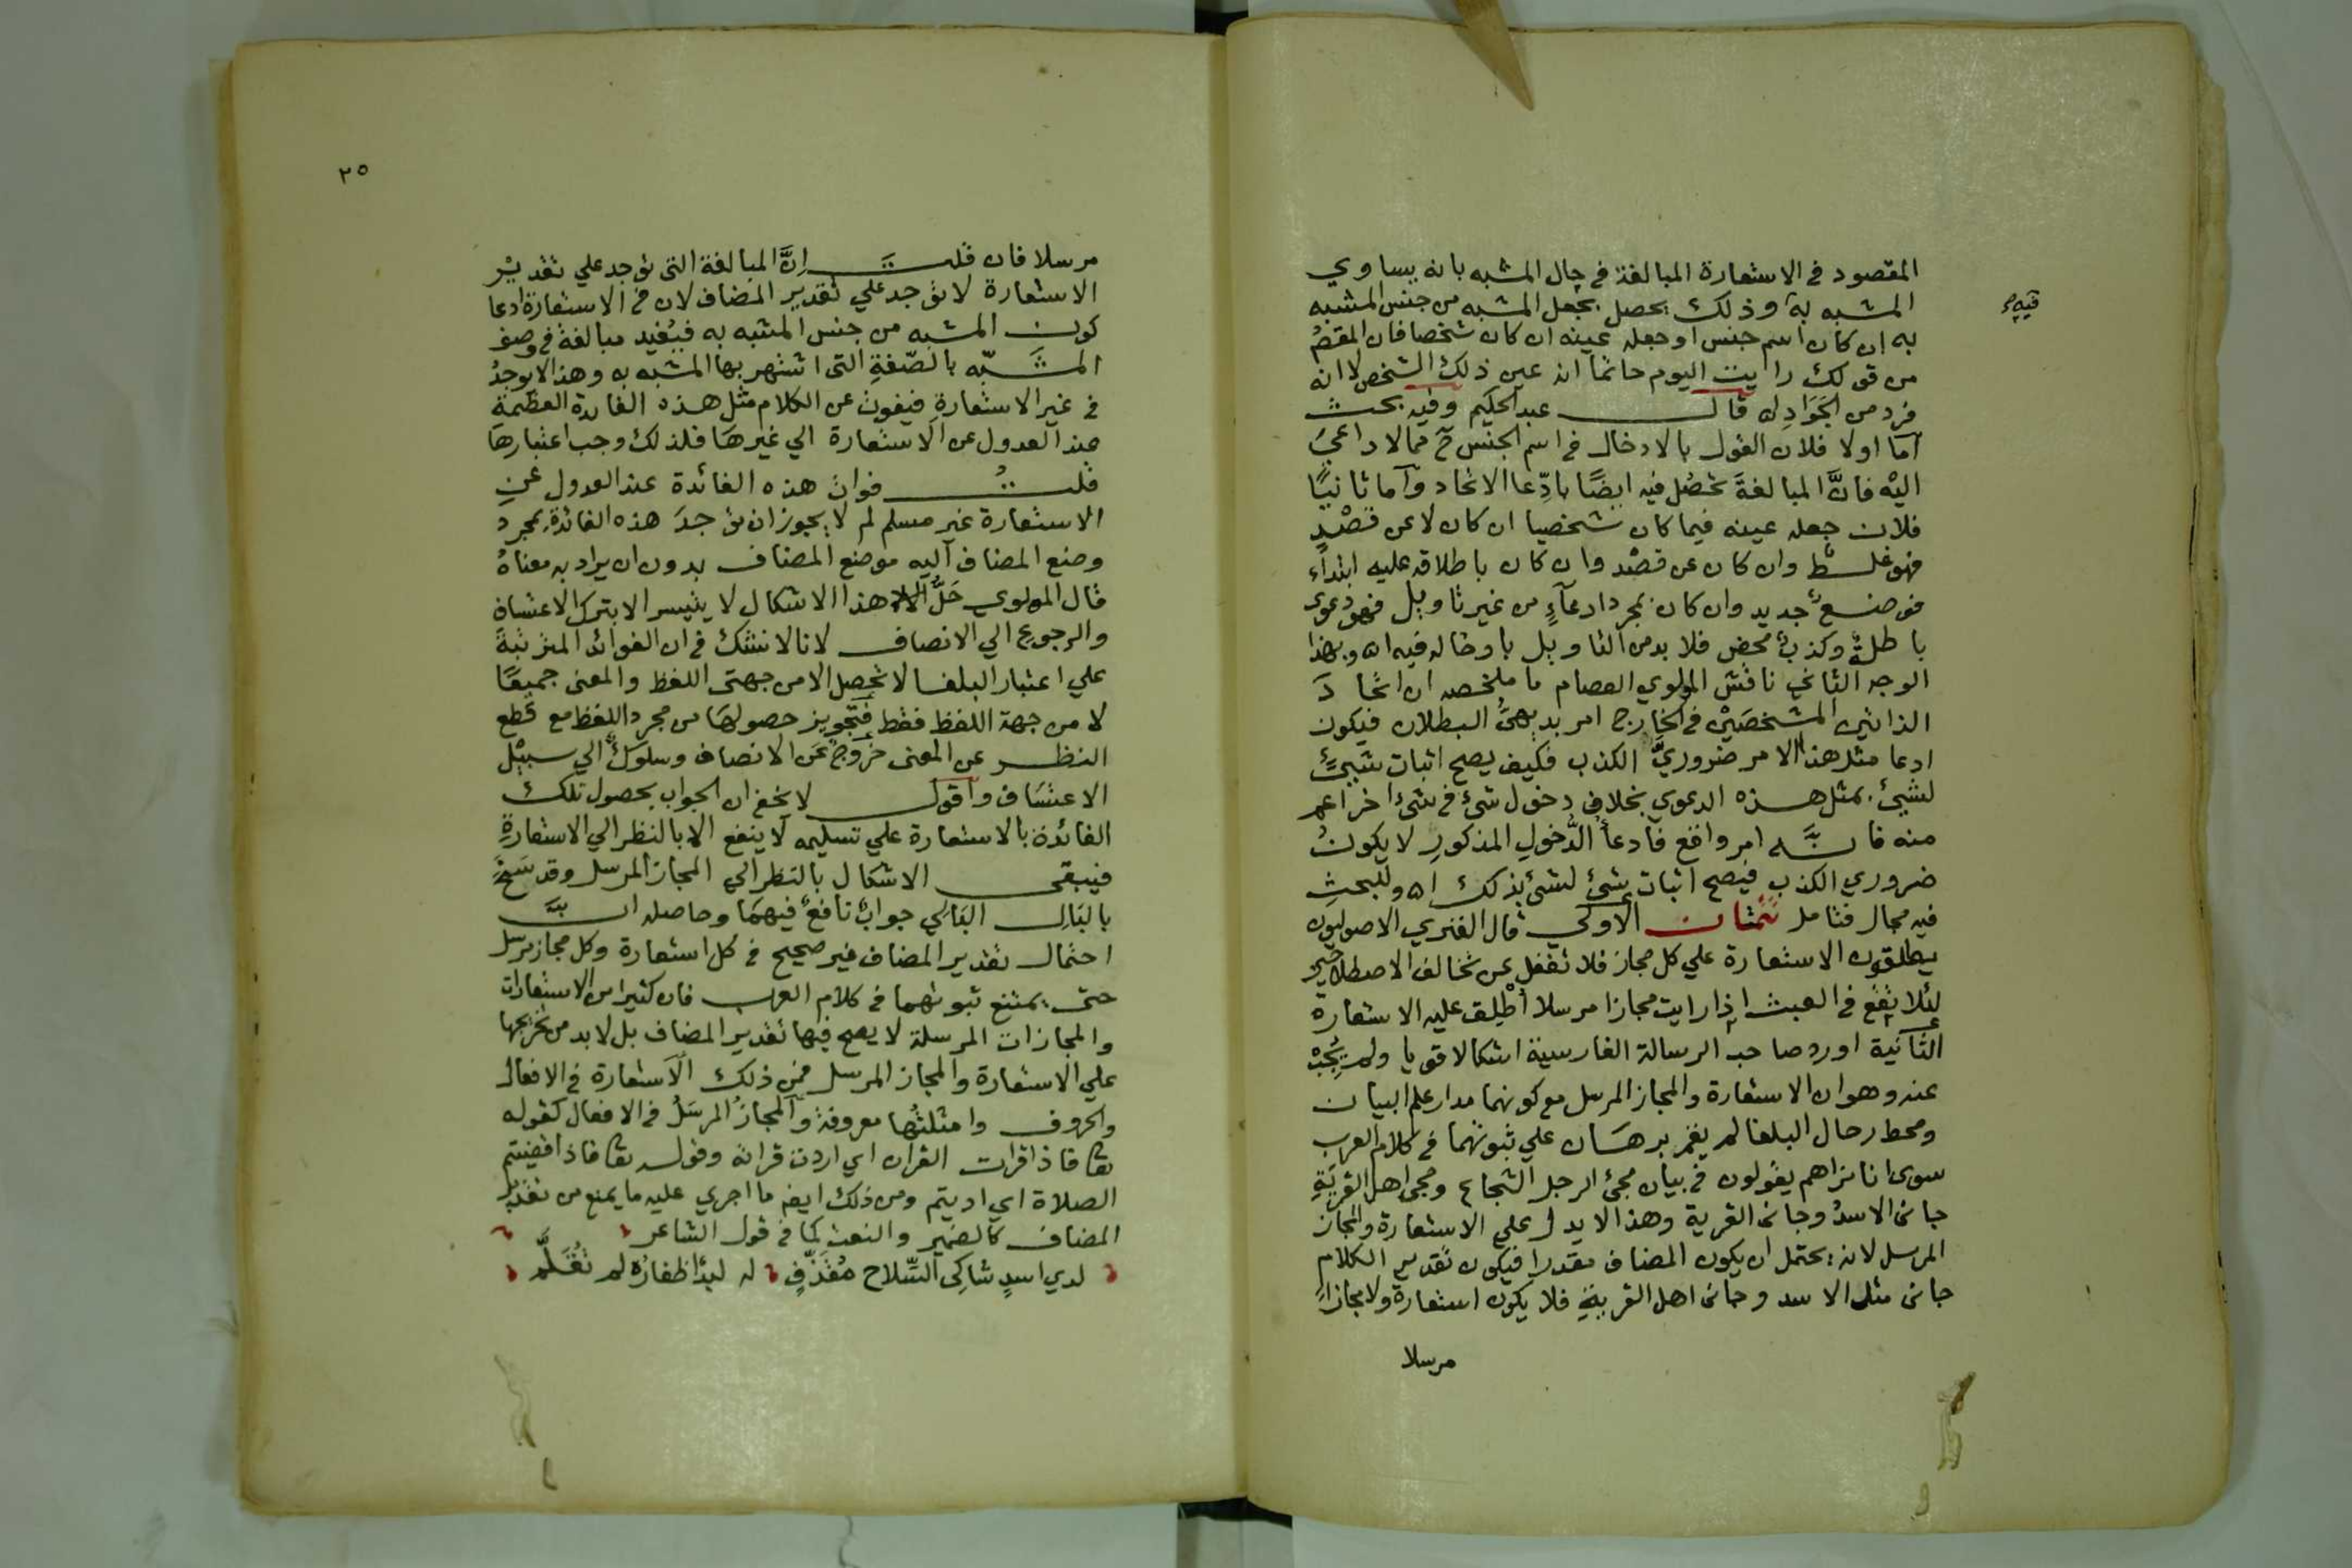 المقصود فى الاستعارة المبالغة فى حال المشبه بانه يساوي
المشبه به وذلك يحصل بجعل المشبه من جنس المشبه
به ان كان اسم جنس او جعله عينه ان كان شخصا فان المقصـ
من قولك رايت اليوم حاتما انه عين ذلك الشخص لا انه
فرد من الجَوَاد اه قال عبد الحكيم وفيه بحث
اما اولا فلان القول بالادخال فى اسم الجنس ح مما لا داعي
اليْه فانَّ المبالغةَ تحصُل فيه ايضًا بادِّعا الاتحاد وآما ثانيًا
فلان جعله عينه فيما كان شخصيا ان كان لا عن قصْدٍ
فهو غلط وان كان عن قصْد وان كان باطلاقه عليه ابتداء
فوضع جديد وان كان بمجرد ادعآءٍ من غير تاويل فهو دعوى
باطلةٌ وكذبٌ محض فلا بد من التاويل باوخاله فيه اه وبهذا
الوجه الثاني ناقش المولوي العصام ما ملخصه ان اتحادَ
الذاتين المشخصَيْن فى الخارج امر بديهىُّ البطلان فيكون
ادعا مثل هذا الامر ضروريَّ الكذب فكيف يصح اثبات شيئٍ
لشيئ بمثل هذه الدعوي بخلاف دخول شئ فى شئ اخر اعم
منه فانَّه امر واقع فادعأُ الدُّخولِ المذكورِ لا يكونُ
ضروري الكذب فيصح اثبات شئ لشئ بذلك اه وللبحثِ
فيه مجال فتامل تَتمَّتان الاولي قال الفنري الاصوليون
يطلقون الاستعارة علي كل مجاز فلا تغفل عن تخالف الاصطلاحين
لئلا تقع فى العبث اذا رايت مجازا مرسلا أُطْلِقَ عليه الاستعارة
الثَّانية اورد صاحب الرسالة الفارسية اشكالا قويا ولم يُجِبْ
عنه وهو ان الاستعارة والمجاز المرسل مع كونهما مدار علم البيان
ومحط رحال البلغا لم يقم برهَان علي ثبوتهما فى كلام العرب
سوى انا نراهم يقولون فى بيان مجئ الرجل الشجاع ومجئ اهل القريَةِ
جانى الاسدُ وجانى القرية وهذا لا يدل علي الاستعارة والمجاز
المرسل لانه يحتمل ان يكون المضاف مقدرا فيكون تقدير الكلام
جانى مثل الاسد وجانى اهل القرية فلا يكون استعارة ولا مجازاً
مرسلا
٢٥
مرسلا فان قلتَ اِنَّ المبالغة التى توجد علي تقديْر
الاستعارة لا توجد علي تقدير المضاف لان فى الاستعارة ادعا
كون المشبه من جنس المشبه به فيُفيد مبالغة فى وصف
المشَبّه بالصّفةِ التى اشتهر بها المشبه به وهذا لا يوجدُ
فى غير الاستعارةِ فيفوت عن الكلام مثل هذه الفائدة العظَيمة
عند العدول عن الاستعارة الي غيرهَا فلذلك وجب اعتبارهَا
قلتُ فوات هذه الفائدة عند العدول عنِ
الاستعارة غير مسلم لم لا يجوز ان توجدَ هذه الفائدة بمجرد
وضع المضاف اليه موضع المضاف بدون ان يراد به معناهُ
قال المولوي حَلُّ هذا الاشكال لا يتيسر الا بترك الاعتساف
والرجوع الي الانصاف لانا لا نشك فى ان الفوائد المترتبة
علي اعتبار البلغا لا تحصل الا من جهتى اللفظ والمعنى جميعًا
لا من جهة اللفظ فقط فتجويز حصولهَا من مجرد اللفظ مع قطع
النظر عن المعنى خروجٌ عَن الانصاف وسلوكٌ الي سبيْل
الاعتسَاف وآقول لا يخفى ان الجواب بحصول تلك
الفائدة بالاستعارة علي تسليمه لا ينفع الا بالنظر الي الاستعارةِ
فيبقى الاشكال بالنظر الي المجاز المرسل وقد سَنحَ
بالبَالِ البَالِي جوابٌ نافعٌ فيهمَا وحاصله انَّ
احتمال تقدير المضاف غير صحيح فى كل استعارة وكل مجاز مرسل
حتى يمتنع ثبوتهما فى كلام العرب فان كثيرا من الاستعارات
والمجازات المرسلة لا يصح فيها تقدير المضاف بل لا بد من تخريجها
علي الاستعارة والمجاز المرسل فمن ذلك الاستعارة فى الافعال
والحروف وامثلتُها معروفة والمجازُ المرسَلُ فى الافعال كقوله
تعا فاذا قرات القران اي اردت قرانه وقوله تعا فاذا قضيتم
الصلاة اي اديتم ومن ذلك ايضا ما اجري عليه ما يمنع من تقدير
المضاف كالضمير والنعت كما فى قول الشاعر
لدي اسدٍ شاكِى السّلاح مُقَذّفٍ له لبدٌ اظفارُه لم تُقَلَّم